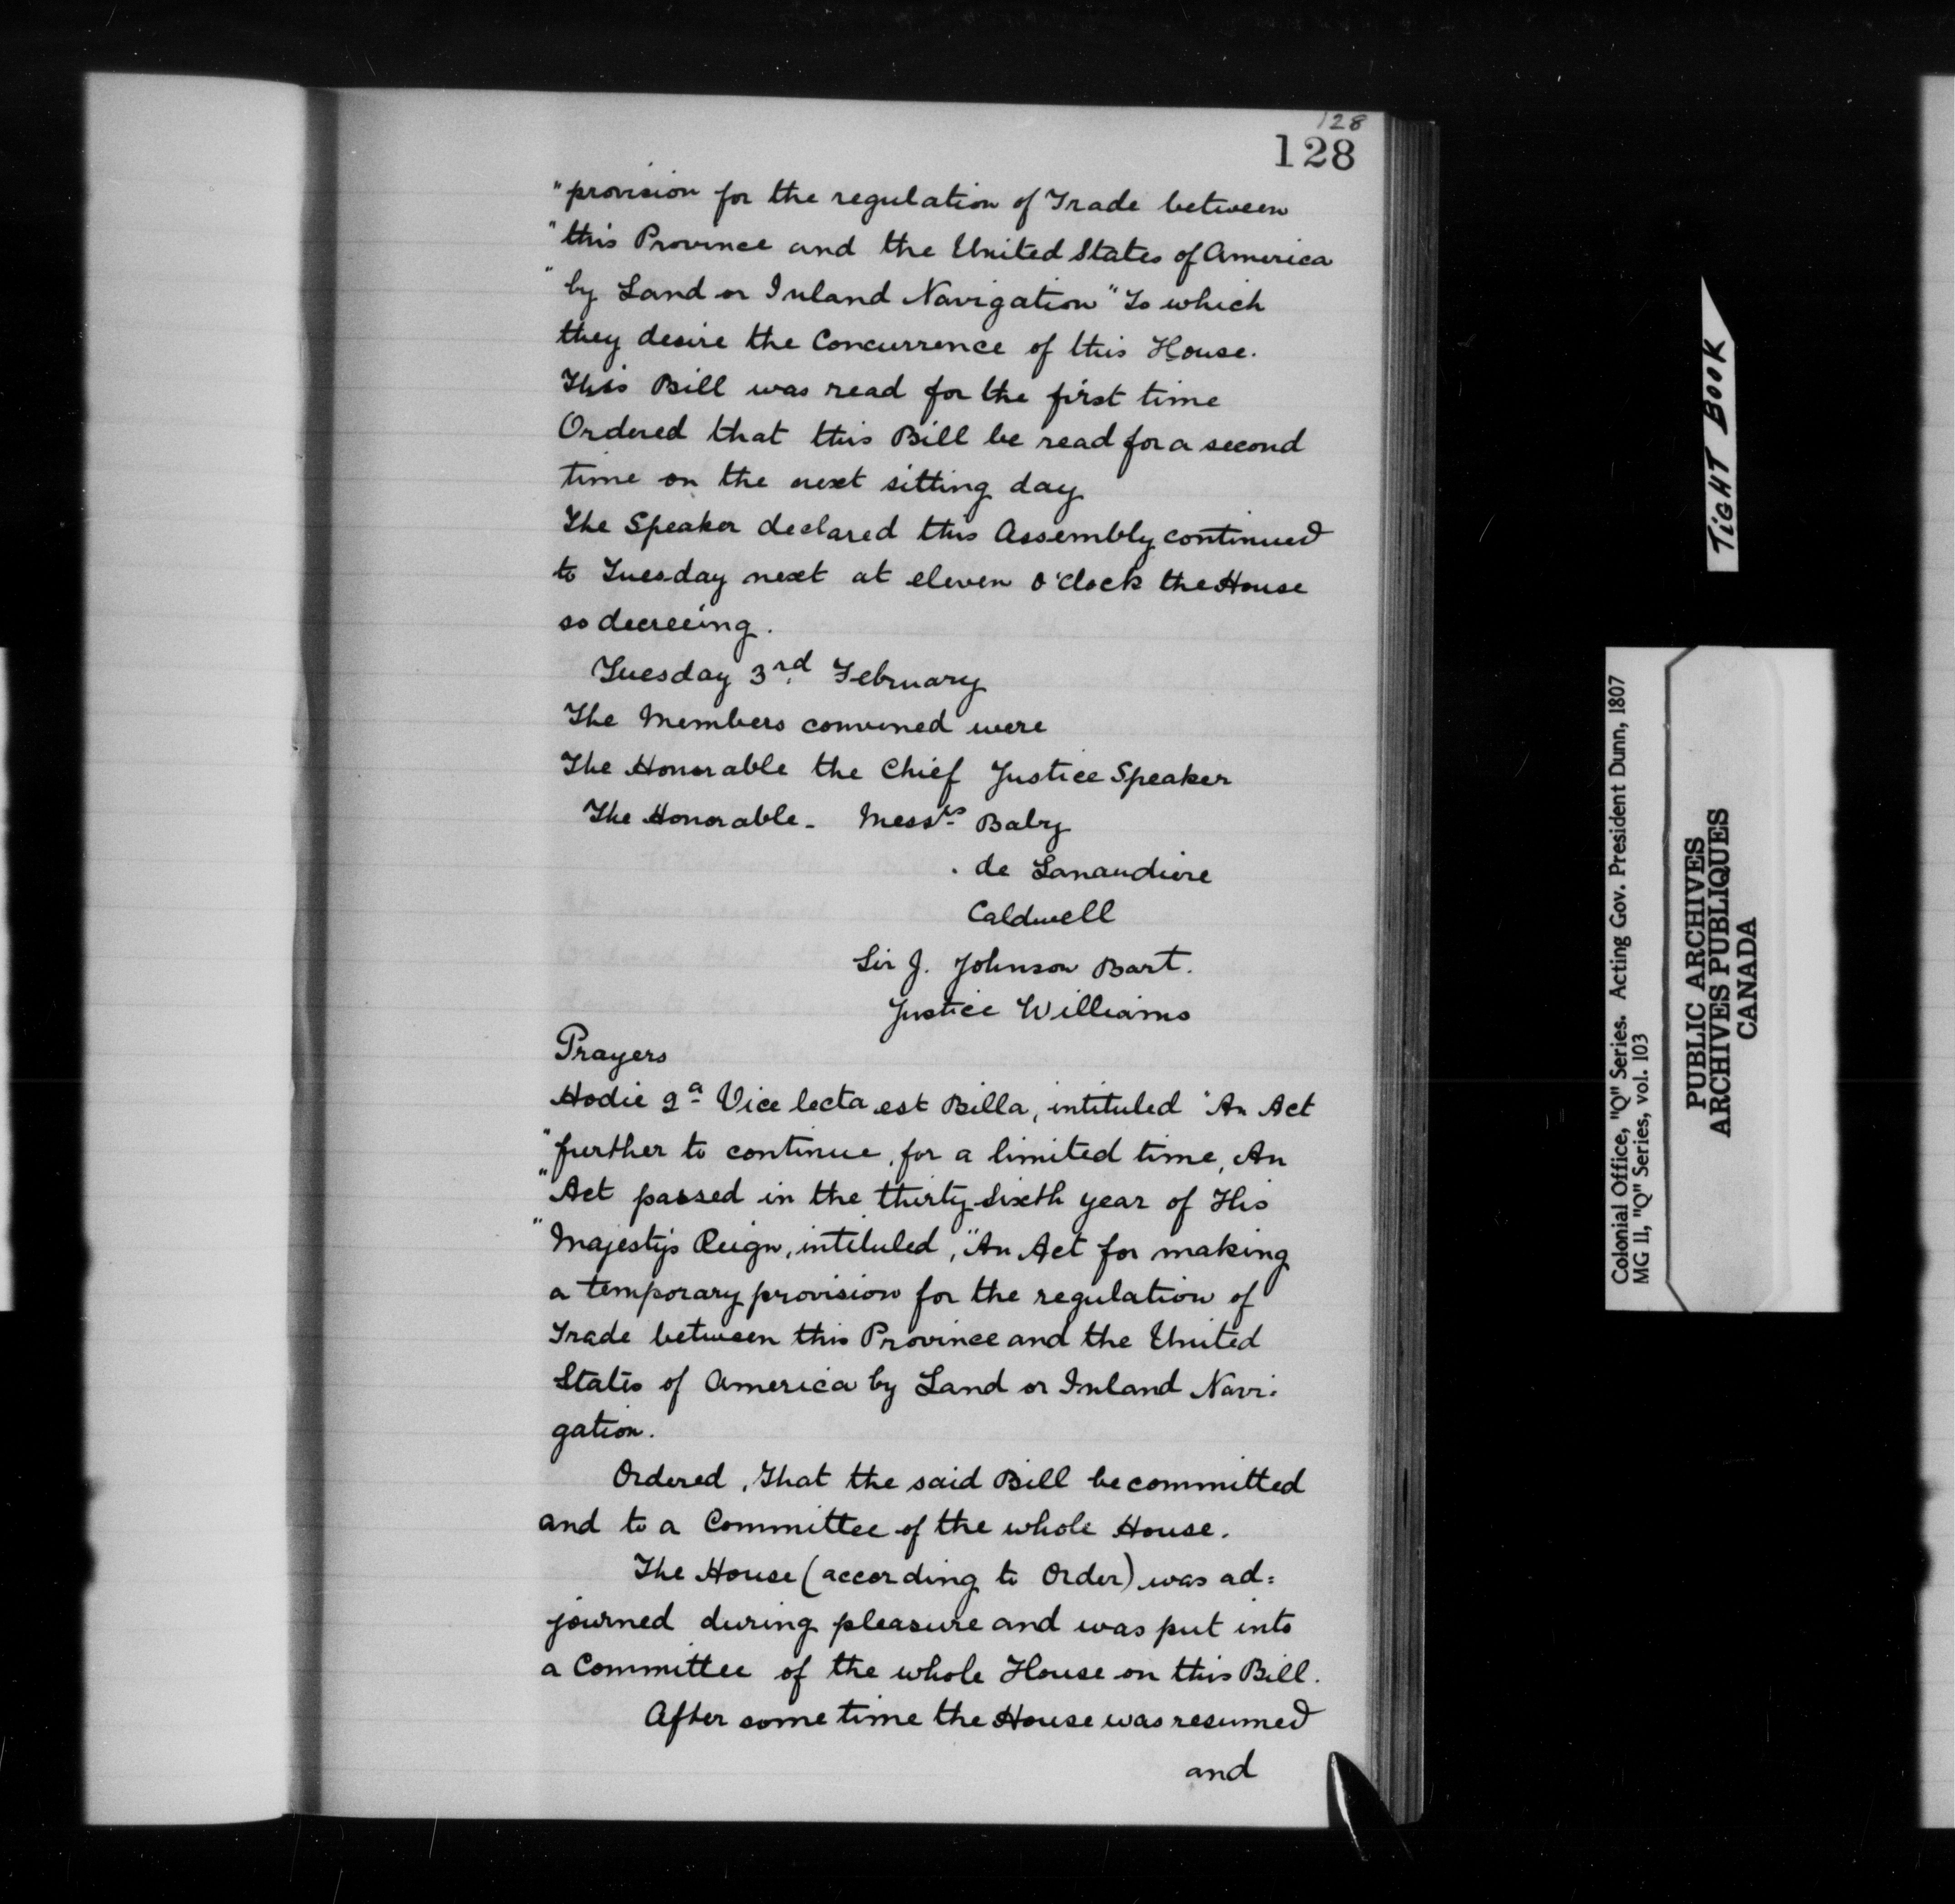 128
128
"provision for the regulation of Trade between
"this Province and the United States of America
"by Land or Inland Navigation" To which
they desire the Concurrence of this House.
This Bill was read for the first time
Ordered that this Bill be read for a second
time on the next sitting day
The Speaker declared this Assembly continued
to Tuesday next at eleven o'clock the House
so decreeing.
Tuesday 3rd February
The Members convened were
The Honorable the Chief Justice Speaker
The Honorable - Messrs Baby
. de Lanaudiere
Caldwell
Sir J. Johnson Bart.
Justice Williams
Prayers
Hodie 2a Vice lecta est Billa, intituled "An Act
"further to continue, for a limited time, An
"Act passed in the thirty sixth year of His
"Majesty's Reign, intituled, "An Act for making
a temporary provision for the regulation of
Trade between this Province and the United
States of America by Land or Inland Navi-
gation.
Ordered, That the said Bill be committed
and to a Committee of the whole House.
The House (according to Order) was ad=
journed during pleasure and was put into
a Committee of the whole House on this Bill.
After some time the House was resumed
and
TIGHT BOOK
Colonial Office, "Q" Series. Acting Gov. President Dunn, 1807
MG 11, "Q" Series, vol. 103
PUBLIC ARCHIVES
ARCHIVES PUBLIQUES
CANADA